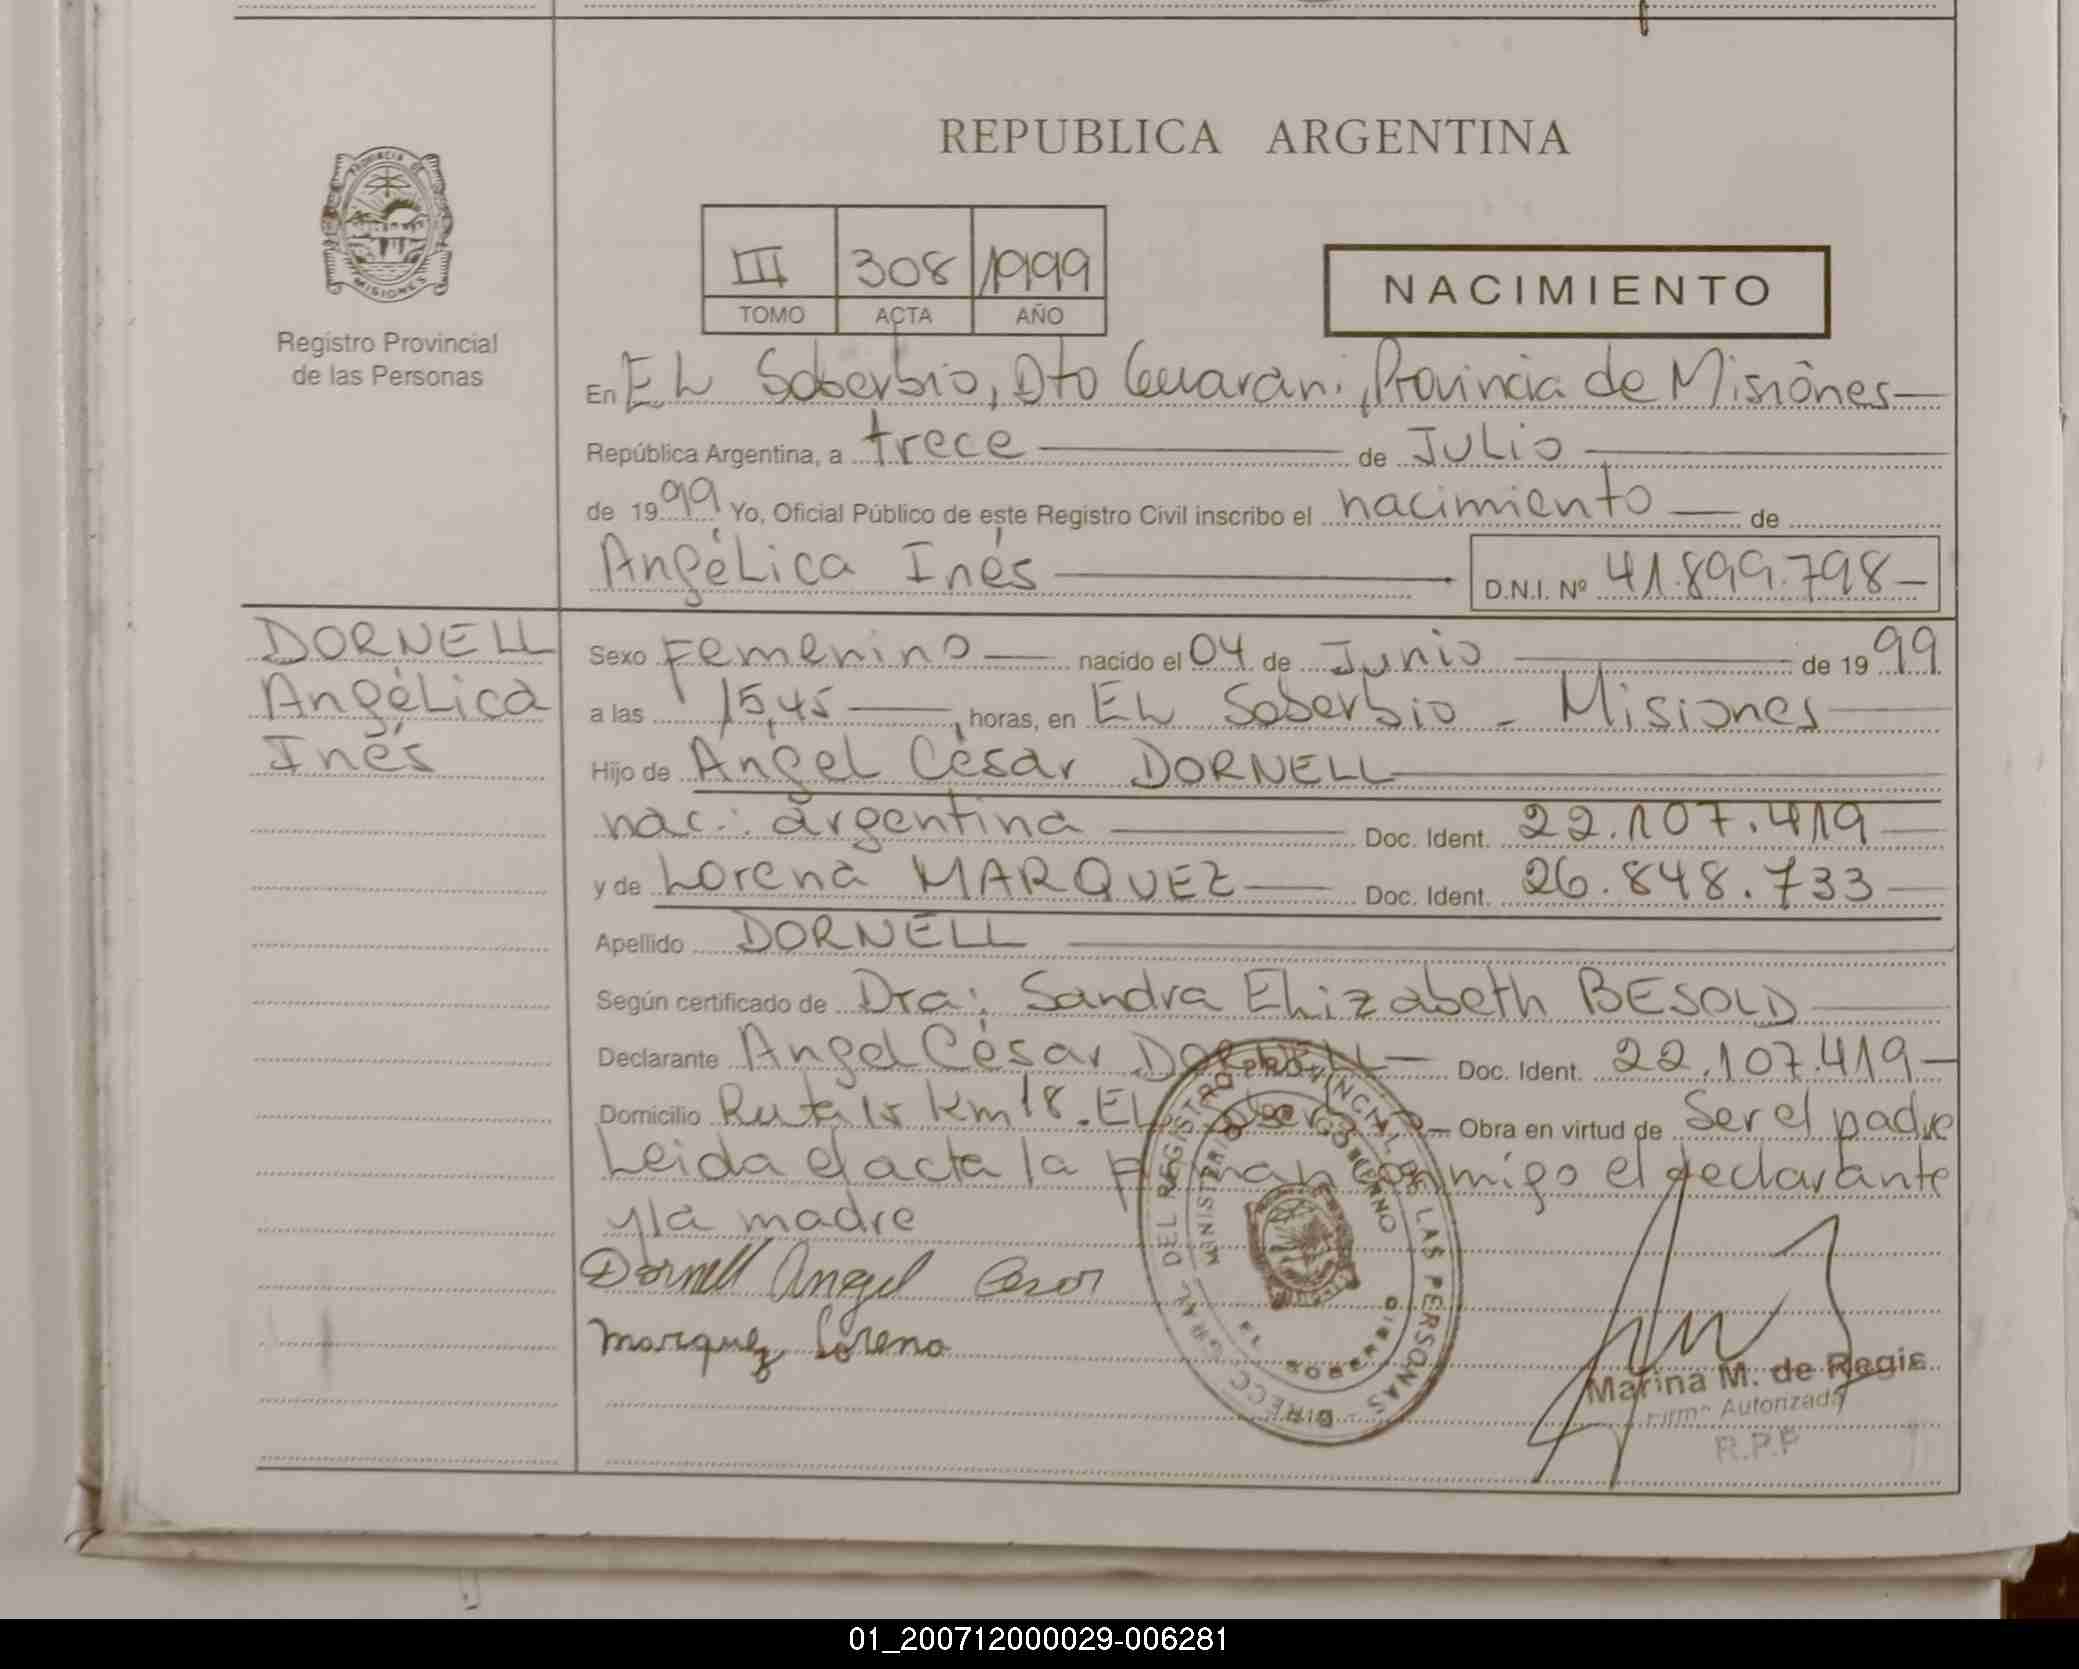 REPUBLICA ARGENTINA
PROVINCIA DE
MISIONES
Registro Provincial
de las Personas
III 308 1999
TOMO ACTA AÑO
NACIMIENTO
En EL Soberbio, Dto Guarani, Provincia de Misiones
República Argentina, a trece de JULio
de 1999 Yo, Oficial Público de este Registro Civil inscribo el nacimiento de
Angélica Inés D.N.I. Nº 41.899.798
DORNELL
Angélica
Inés
Sexo Femenino nacido el 04 de Junio de 1999
a las 15,45 horas, en EL Soberbio - Misiones
Hijo de Angel César DORNELL
nac.: argentina Doc. Ident. 22.107.419
y de Lorena MARQUEZ Doc. Ident. 26.848.733
Apellido DORNELL
Según certificado de Dra: Sandra Elizabeth BESOLD
Declarante Angel César DORNELL Doc. Ident. 22.107.419
Domicilio Ruta km 18. EL Soberbio Obra en virtud de Ser el padre
Leida el acta la firman conmigo el declarante
y la madre
Dornell Angel Cesar
Marquez Lorena
DIRECC. GRAL. DEL REGISTRO PROVINCIAL DE LAS PERSONAS
MINISTERIO DE GOBIERNO
EL SOBERBIO
Marina M. de Regis
Firma Autorizada
R.P.P
01_200712000029-006281